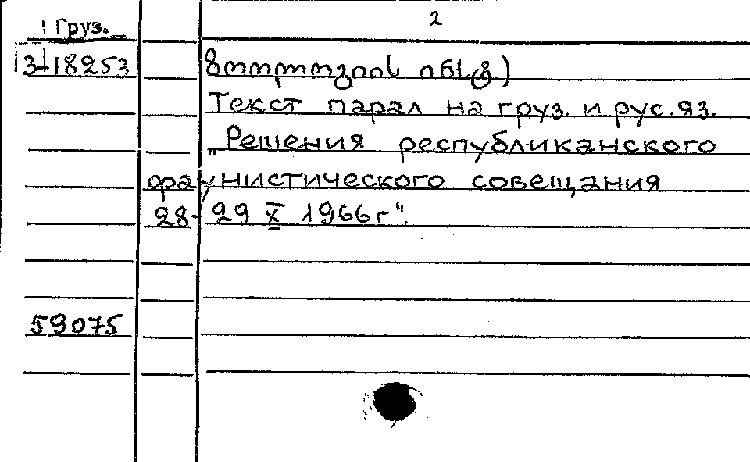 Груз. 2
3-18253 ზოოლოგიის ინსტ.)
Текст парал на груз. и рус. яз.
„Решения республиканского
фаунистического совещания
28-29 X 1966г".
59075